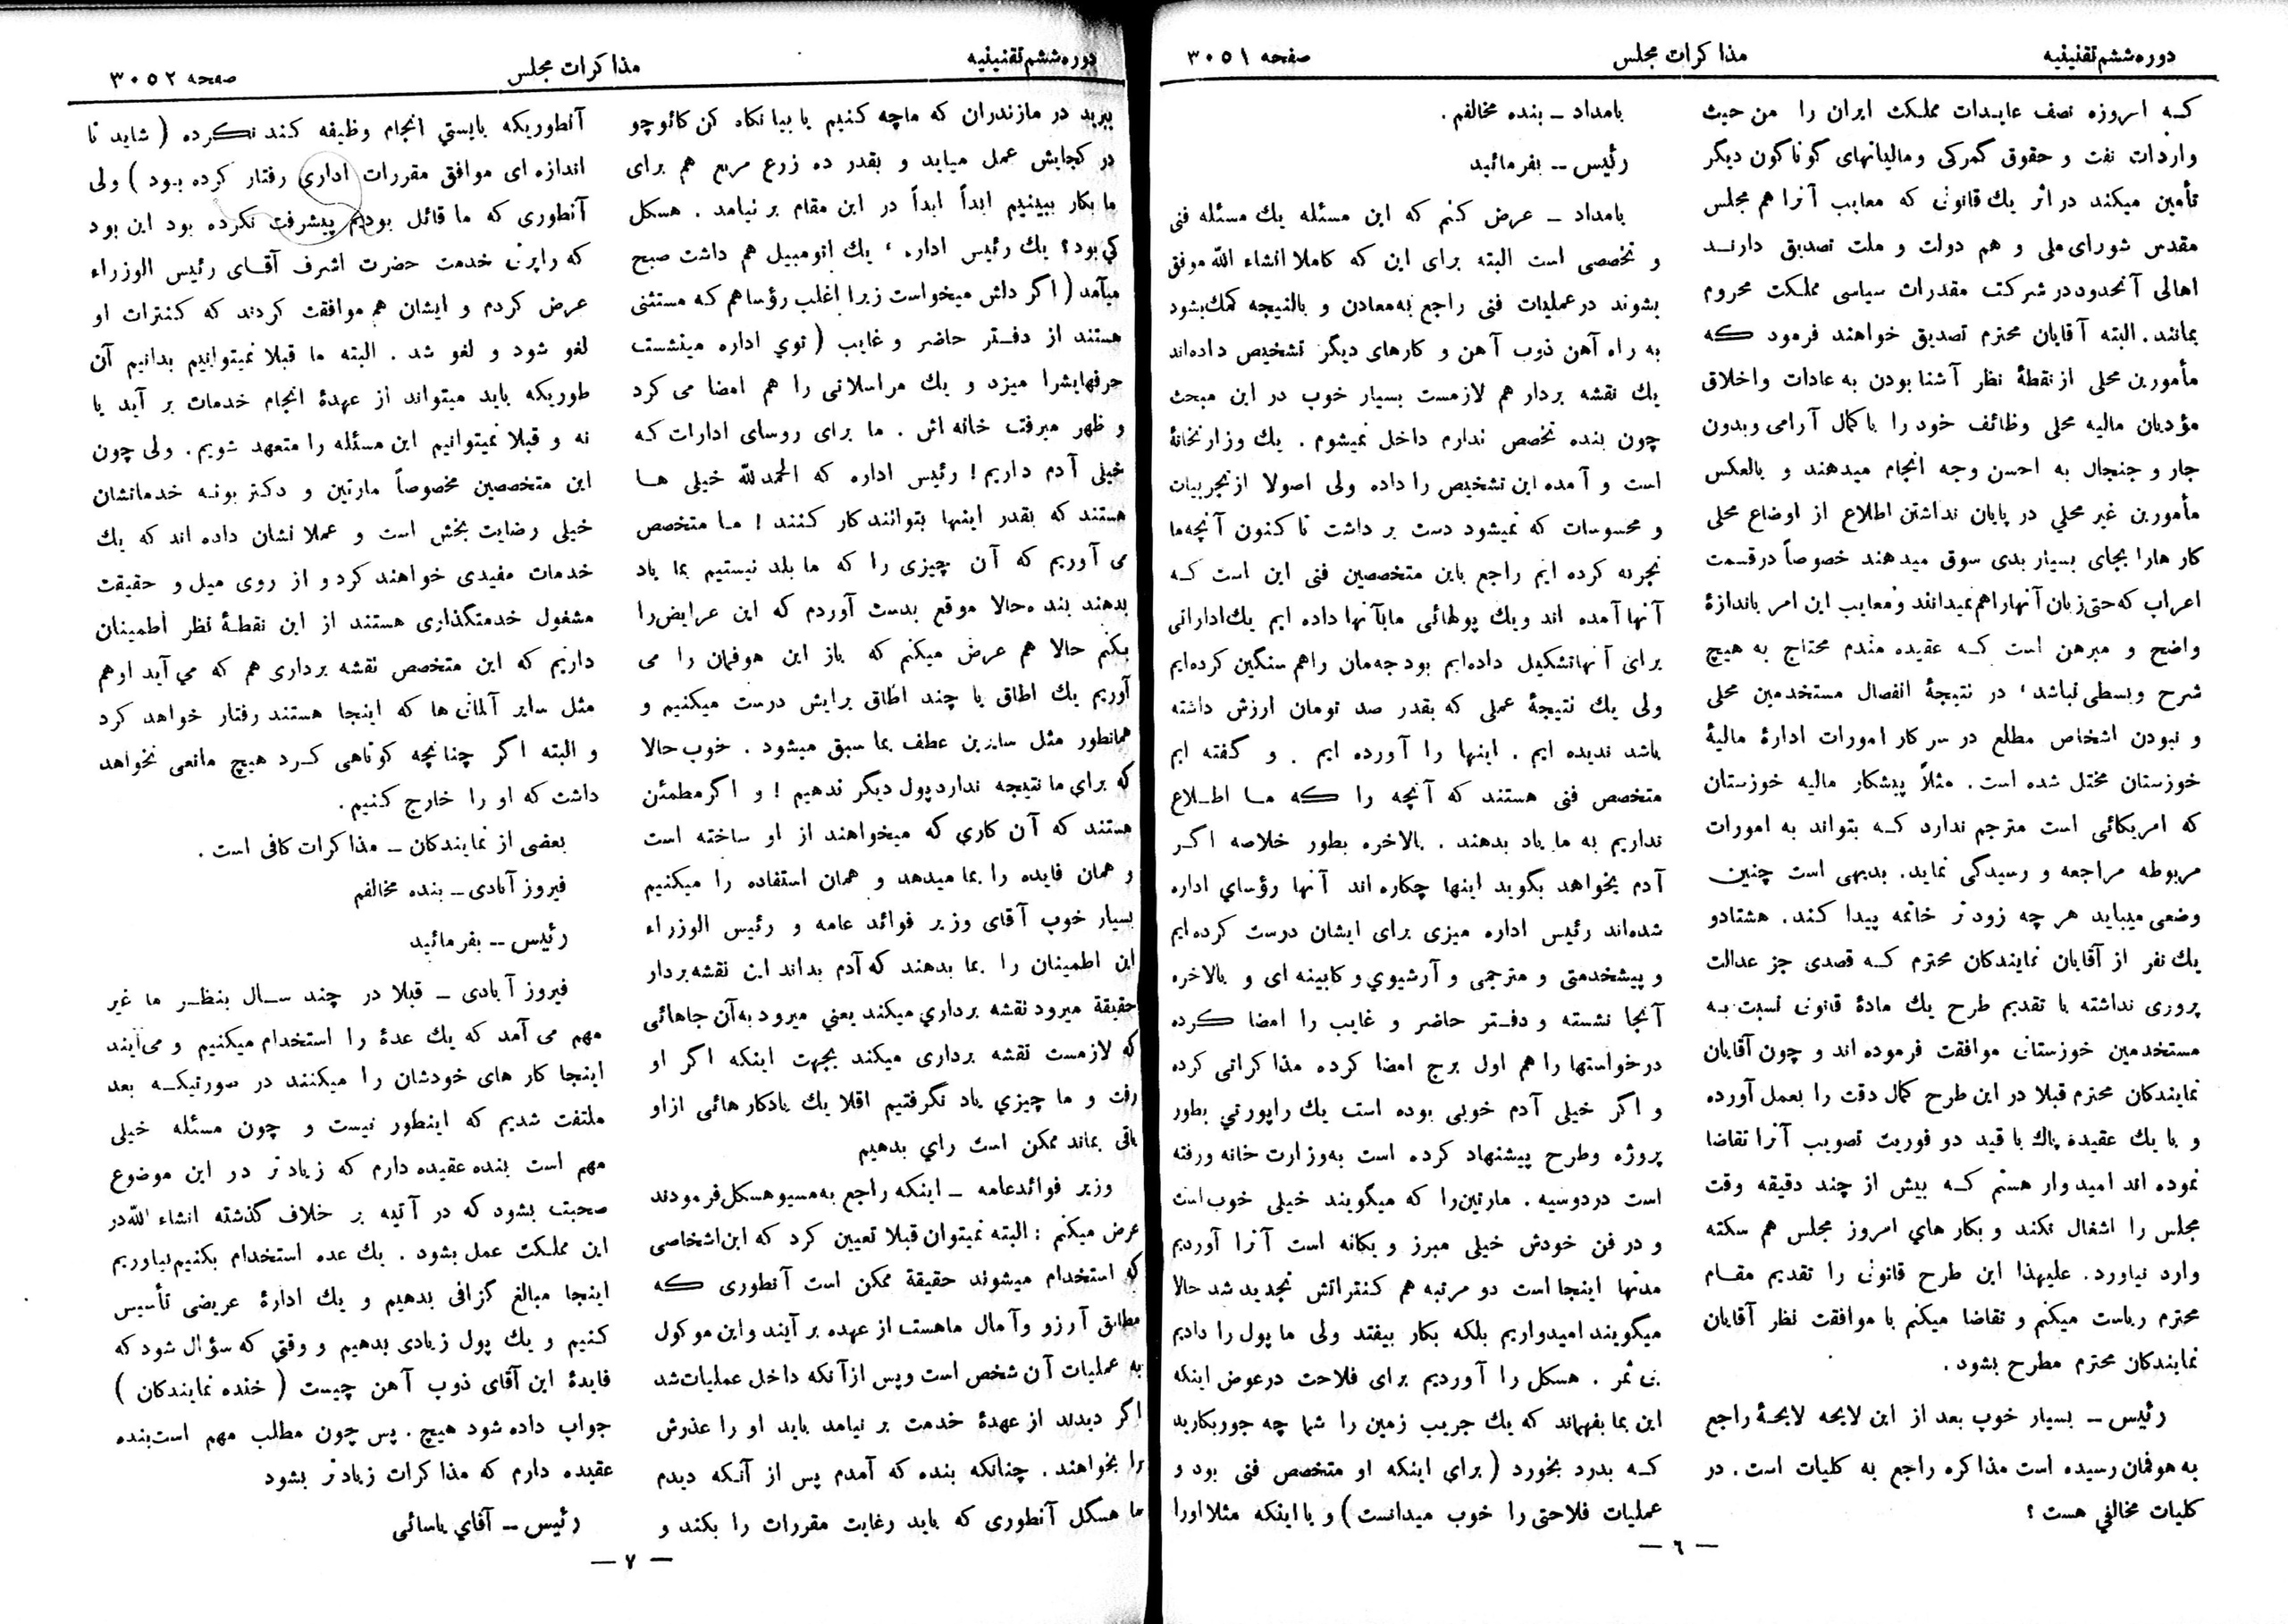 دوره ششم تقنینیه
مذاکرات مجلس
صفحه ۳۰۵۱
که امروزه نصف عایدات مملکت ایران را من حیث
واردات نفت و حقوق گمرکی ومالیاتهای گوناگون دیگر
تأمین میکند در اثر یك قانونی که معایب آنرا هم مجلس
مقدس شورای ملی و هم دولت و ملت تصدیق دارند
اهالی آنحدود در شرکت مقدرات سیاسی مملکت محروم
بمانند. البته آقایان محترم تصدیق خواهند فرمود که
مأمورین محلی از نقطهٔ نظر آشنا بودن به عادات واخلاق
مؤدیان مالیه محلی وظائف خود را با کمال آرامی وبدون
جار و جنجال به احسن وجه انجام میدهند و بالعکس
مأمورین غیر محلي در پایان نداشتن اطلاع از اوضاع محلی
کار هارا بجای بسیار بدی سوق میدهند خصوصاً در قسمت
اعراب که حتی زبان آنهارا هم نمیدانند ومعایب این امر باندازهٔ
واضح و مبرهن است که عقیده مندم محتاج به هیچ
شرح وبسطی نباشد، در نتیجهٔ انفصال مستخدمین محلی
و نبودن اشخاص مطلع در سر کار امورات ادارهٔ مالیهٔ
خوزستان مختل شده است. مثلاً پیشکار مالیه خوزستان
که امریکائی است مترجم ندارد که بتواند به امورات
مربوطه مراجعه و رسیدگی نماید. بدیهی است چنین
وضعی میباید هر چه زود تر خاتمه پیدا کند. هشتادو
یك نفر از آقایان نمایندکان محترم که قصدی جز عدالت
پروری نداشته با تقدیم طرح یك مادهٔ قانونی نسبت به
مستخدمین خوزستانی موافقت فرموده اند و چون آقایان
نمایندکان محترم قبلا در این طرح کمال دقت را بعمل آورده
و با یك عقیده پاك با قید دو فوریت تصویب آنرا تقاضا
نموده اند امید وار هستم که بیش از چند دقیقه وقت
مجلس را اشغال نکند و بکار هاي امروز مجلس هم سکته
وارد نیاورد. علیهذا این طرح قانونی را تقدیم مقام
محترم ریاست میکنم و تقاضا میکنم با موافقت نظر آقایان
نمایندکان محترم مطرح بشود.
رئیس – بسیار خوب بعد از این لایحه لایحهٔ راجع
به هوفمان رسیده است مذاکره راجع به کلیات است. در
کلیات مخالفي هست؟
بامداد – بنده مخالفم.
رئیس – بفرمائید
بامداد – عرض کنم که این مسئله یك مسئله فنی
و تخصصی است البته برای این که کاملا انشاء الله موفق
بشوند در عملیات فنی راجع به معادن و بالنتیجه کمك بشود
به راه آهن ذوب آهن و کارهای دیگر تشخیص داده‌اند
یك نقشه بردار هم لازمست بسیار خوب در این مبحث
چون بنده تخصص ندارم داخل نمیشوم. یك وزارتخانهٔ
است و آمده این تشخیص را داده ولی اصولا از تجربیات
و محسوسات که نمیشود دست بر داشت تا کنون آنچه ما
تجربه کرده ایم راجع باین متخصصین فنی این است که
آنها آمده اند ویك پولهائی ما بآنها داده ایم یك اداراتی
برای آنها تشکیل داده‌ایم بودجه‌مان راهم سنگین کرده‌ایم
ولی یك نتیجهٔ عملی که بقدر صد تومان ارزش داشته
باشد ندیده ایم. اینها را آورده ایم. و گفته ایم
متخصص فنی هستند که آنچه را که ما اطلاع
نداریم به ما یاد بدهند. بالاخره بطور خلاصه اگر
آدم بخواهد بگوید اینها چکاره اند آنها رؤسای اداره
شده‌اند رئیس اداره میزی برای ایشان درست کرده‌ایم
و پیشخدمتی و مترجمی و آرشیوي و کابینه ای و بالاخره
آنجا نشسته و دفتر حاضر و غایب را امضا کرده
درخواستها را هم اول برج امضا کرده مذاکراتی کرده
و اگر خیلی آدم خوبی بوده است یك راپورتي بطور
پروژه وطرح پیشنهاد کرده است به وزارت خانه ورفته
است در دوسیه. مارتین را که میگویند خیلی خوب است
و در فن خودش خیلی مبرز و یکانه است آنرا آوردیم
مدتها اینجا است دو مرتبه هم کنتراتش تجدید شد حالا
میگویند امیدواریم بلکه بکار بیفتد ولی ما پول را دادیم
بی ثمر. هسکل را آوردیم برای فلاحت در عوض اینکه
این بما بفهماند که یك جریب زمین را شما چه جور بکارید
که بدرد بخورد (برای اینکه او متخصص فنی بود و
عملیات فلاحتی را خوب میدانست) و یا اینکه مثلا اورا
— ٦ —
دوره ششم تقنینیه
مذاکرات مجلس
صفحه ۳۰۵۲
ببرید در مازندران که ماچه کنیم یا بیا نکاه کن کائوچو
در کجایش عمل میاید و بقدر ده زرع مربع هم برای
ما بکار ببینیم ابداً ابداً در این مقام بر نیامد. هسکل
کي بود؟ یك رئیس اداره، یك اتومبیل هم داشت صبح
میآمد (اگر دلش میخواست زیرا اغلب رؤساهم که مستثنی
هستند از دفتر حاضر و غایب) توي اداره مینشست
حرفهایشرا میزد و یك مراسلاتی را هم امضا می کرد
و ظهر میرفت خانه اش. ما برای روسای ادارات که
خیلی آدم داریم! رئیس اداره که الحمد لله خیلی ها
هستند که بقدر اینها بتوانند کار کنند! ما متخصص
می آوریم که آن چیزی را که ما بلد نیستیم بما یاد
بدهند بنده حالا موقع بدست آوردم که این عرایض را
بکنم حالا هم عرض میکنم که باز این هوفمان را می
آوریم یك اطاق یا چند اطاق برایش درست میکنیم و
همانطور مثل سایرین عطف بما سبق میشود. خوب حالا
که براي ما نتیجه ندارد پول دیگر ندهیم! و اگر مطمئن
هستند که آن کاری که میخواهند از او ساخته است
و همان فایده را بما میدهد و همان استفاده را میکنیم
بسیار خوب آقای وزیر فوائد عامه و رئیس الوزراء
این اطمینان را بما بدهند که آدم بداند این نقشه بردار
حقیقة میرود نقشه برداري میکند یعني میرود به آن جاهائی
که لازمست نقشه برداری میکند بجهت اینکه اگر او
رفت و ما چیزي یاد نگرفتیم اقلا یك یادکار هائی از او
باقی بماند ممکن است راي بدهیم
وزیر فوائد عامه – اینکه راجع به مسیو هسکل فرمودند
عرض میکنم: البته نمیتوان قبلا تعیین کرد که این اشخاصی
که استخدام میشوند حقیقة ممکن است آنطوری که
مطابق آرزو وآمال ماهست از عهده بر آیند واین موکول
به عملیات آن شخص است وپس از آنکه داخل عملیات شد
اگر دیدند از عهدهٔ خدمت بر نیامد باید او را عذرش
را بخواهند. چنانکه بنده که آمدم پس از آنکه دیدم
هسکل آنطوری که باید رعایت مقررات را بکند و
آنطوریکه بایستي انجام وظیفه کند نکرده (شاید تا
اندازه ای موافق مقررات اداری رفتار کرده بود) ولی
آنطوری که ما قائل بودیم پیشرفت نکرده بود این بود
که راپرتی خدمت حضرت اشرف آقای رئیس الوزراء
عرض کردم و ایشان هم موافقت کردند که کنترات او
لغو شود و لغو شد. البته ما قبلا نمیتوانیم بدانیم آن
طوریکه باید میتواند از عهدهٔ انجام خدمات بر آید یا
نه و قبلا نمیتوانیم این مسئله را متعهد شویم. ولی چون
این متخصصین مخصوصاً مارتین و دکتر بونه خدماتشان
خیلی رضایت بخش است و عملا نشان داده اند که یك
خدمات مفیدی خواهند کرد و از روی میل و حقیقت
مشغول خدمتگذاری هستند از این نقطهٔ نظر اطمینان
داریم که این متخصص نقشه برداری هم که می آید او هم
مثل سایر آلمانی ها که اینجا هستند رفتار خواهد کرد
و البته اگر چنانچه کوتاهی کرد هیچ مانعی نخواهد
داشت که او را خارج کنیم.
بعضی از نمایندکان – مذاکرات کافی است.
فیروز آبادی – بنده مخالفم
رئیس – بفرمائید
فیروز آبادی – قبلا در چند سال بنظر ما غیر
مهم می آمد که یك عدهٔ را استخدام میکنیم و می آیند
اینجا کار های خودشان را میکنند در صورتیکه بعد
ملتفت شدیم که اینطور نیست و چون مسئله خیلی
مهم است بنده عقیده دارم که زیاد تر در این موضوع
صحبت بشود که در آتیه بر خلاف گذشته انشاء الله در
این مملکت عمل بشود. یك عده استخدام بکنیم بیاوریم
اینجا مبالغ گزافی بدهیم و یك ادارهٔ عریضی تأسیس
کنیم و یك پول زیادی بدهیم و وقتي که سؤال شود که
فایدهٔ این آقای ذوب آهن چیست (خنده نمایندکان)
جواب داده شود هیچ. پس چون مطلب مهم است بنده
عقیده دارم که مذاکرات زیاد تر بشود
رئیس – آقاي یاسائی
— ۷ —